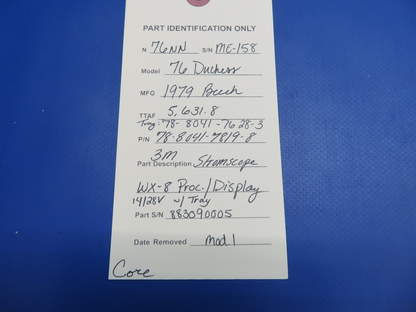 PART IDENTIFICATION ONLY
N 76NN S/N ME-158
Model 76 Duchess
MFG 1979 Beech
TTAF 5,631.8
Tray: 78-8041-7628-3
P/N 78-8041-7819-8
3M
Part Description Stormscope
WX-8 Proc./Display
14/28V w/ Tray
Part S/N 883090005
Date Removed Mod 1
Core